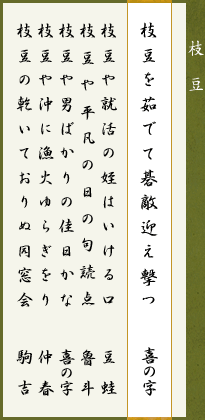 枝豆
枝豆を茹でて碁敵迎え撃つ 喜の字
枝豆や就活の姪はいける口 豆蛙
枝豆や平凡の日の句読点 魯斗
枝豆や男ばかりの佳日かな 喜の字
枝豆や沖に漁火ゆらぎをり 仲春
枝豆の乾いておりぬ同窓会 駒吉